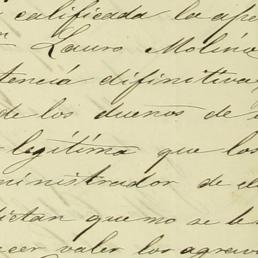 calificada la ape
n Lauro Molina
tencia difinitiva
de los duenos de
legítima que los
ministrador de el
dictan que no se le
cer valer los agrav